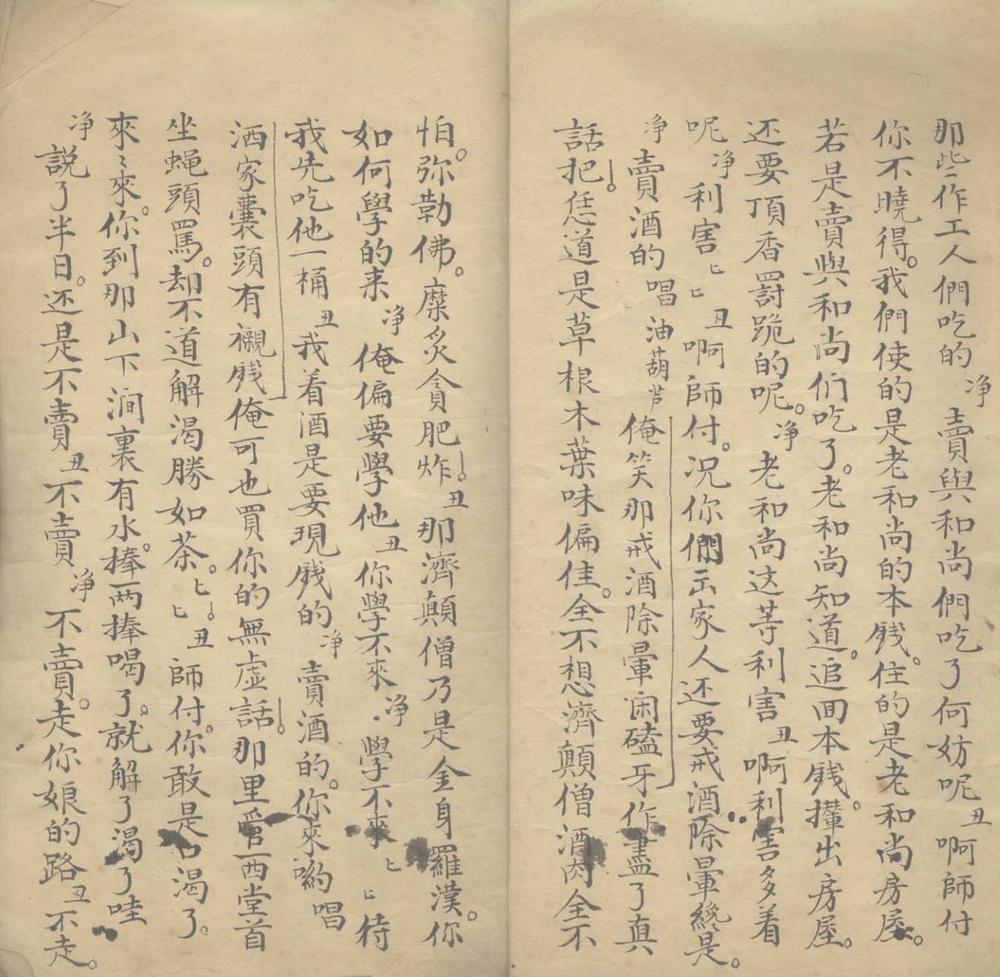 那些作工人們吃的 净 賣與和尚們吃了何妨呢 丑 啊師付
你不曉得。我們使的是老和尚的本戋。住的是老和尚房屋。
若是賣與和尚们吃了。老和尚知道。追回本戋。攆出房屋。
还要頂香罸跪的呢。净 老和尚这等利害 丑 啊利害多着
呢 净 利害匕匕 丑 啊師付。况你們出家人还要戒酒除暈纔是。
净 賣酒的 唱 油葫芦 俺笑那戒酒除暈闲磕牙作盡了真
話把。恁道是草根木葉味偏佳。全不想濟顛僧酒肉全不
怕。弥勒佛。糜炙貪肥炸。丑 那濟顛僧乃是金身羅漢。你
如何學的来 净 俺偏要學他 丑 你學不來 净 學不來匕匕待
我先吃他一桶 丑 我着酒是要現戋的 净 賣酒的。你來喲 唱
洒家囊頭有襯戋俺可也買你的無虚話。那里管西堂首
坐蝇頭罵。却不道解渴勝如茶。匕匕。丑 師付。你敢是口渴了。
來〻來。你到那山下澗裏有水。捧両捧喝了。就解了渴了哇
净 説了半日。还是不賣 丑 不賣 净 不賣。走你娘的路 丑 不走。